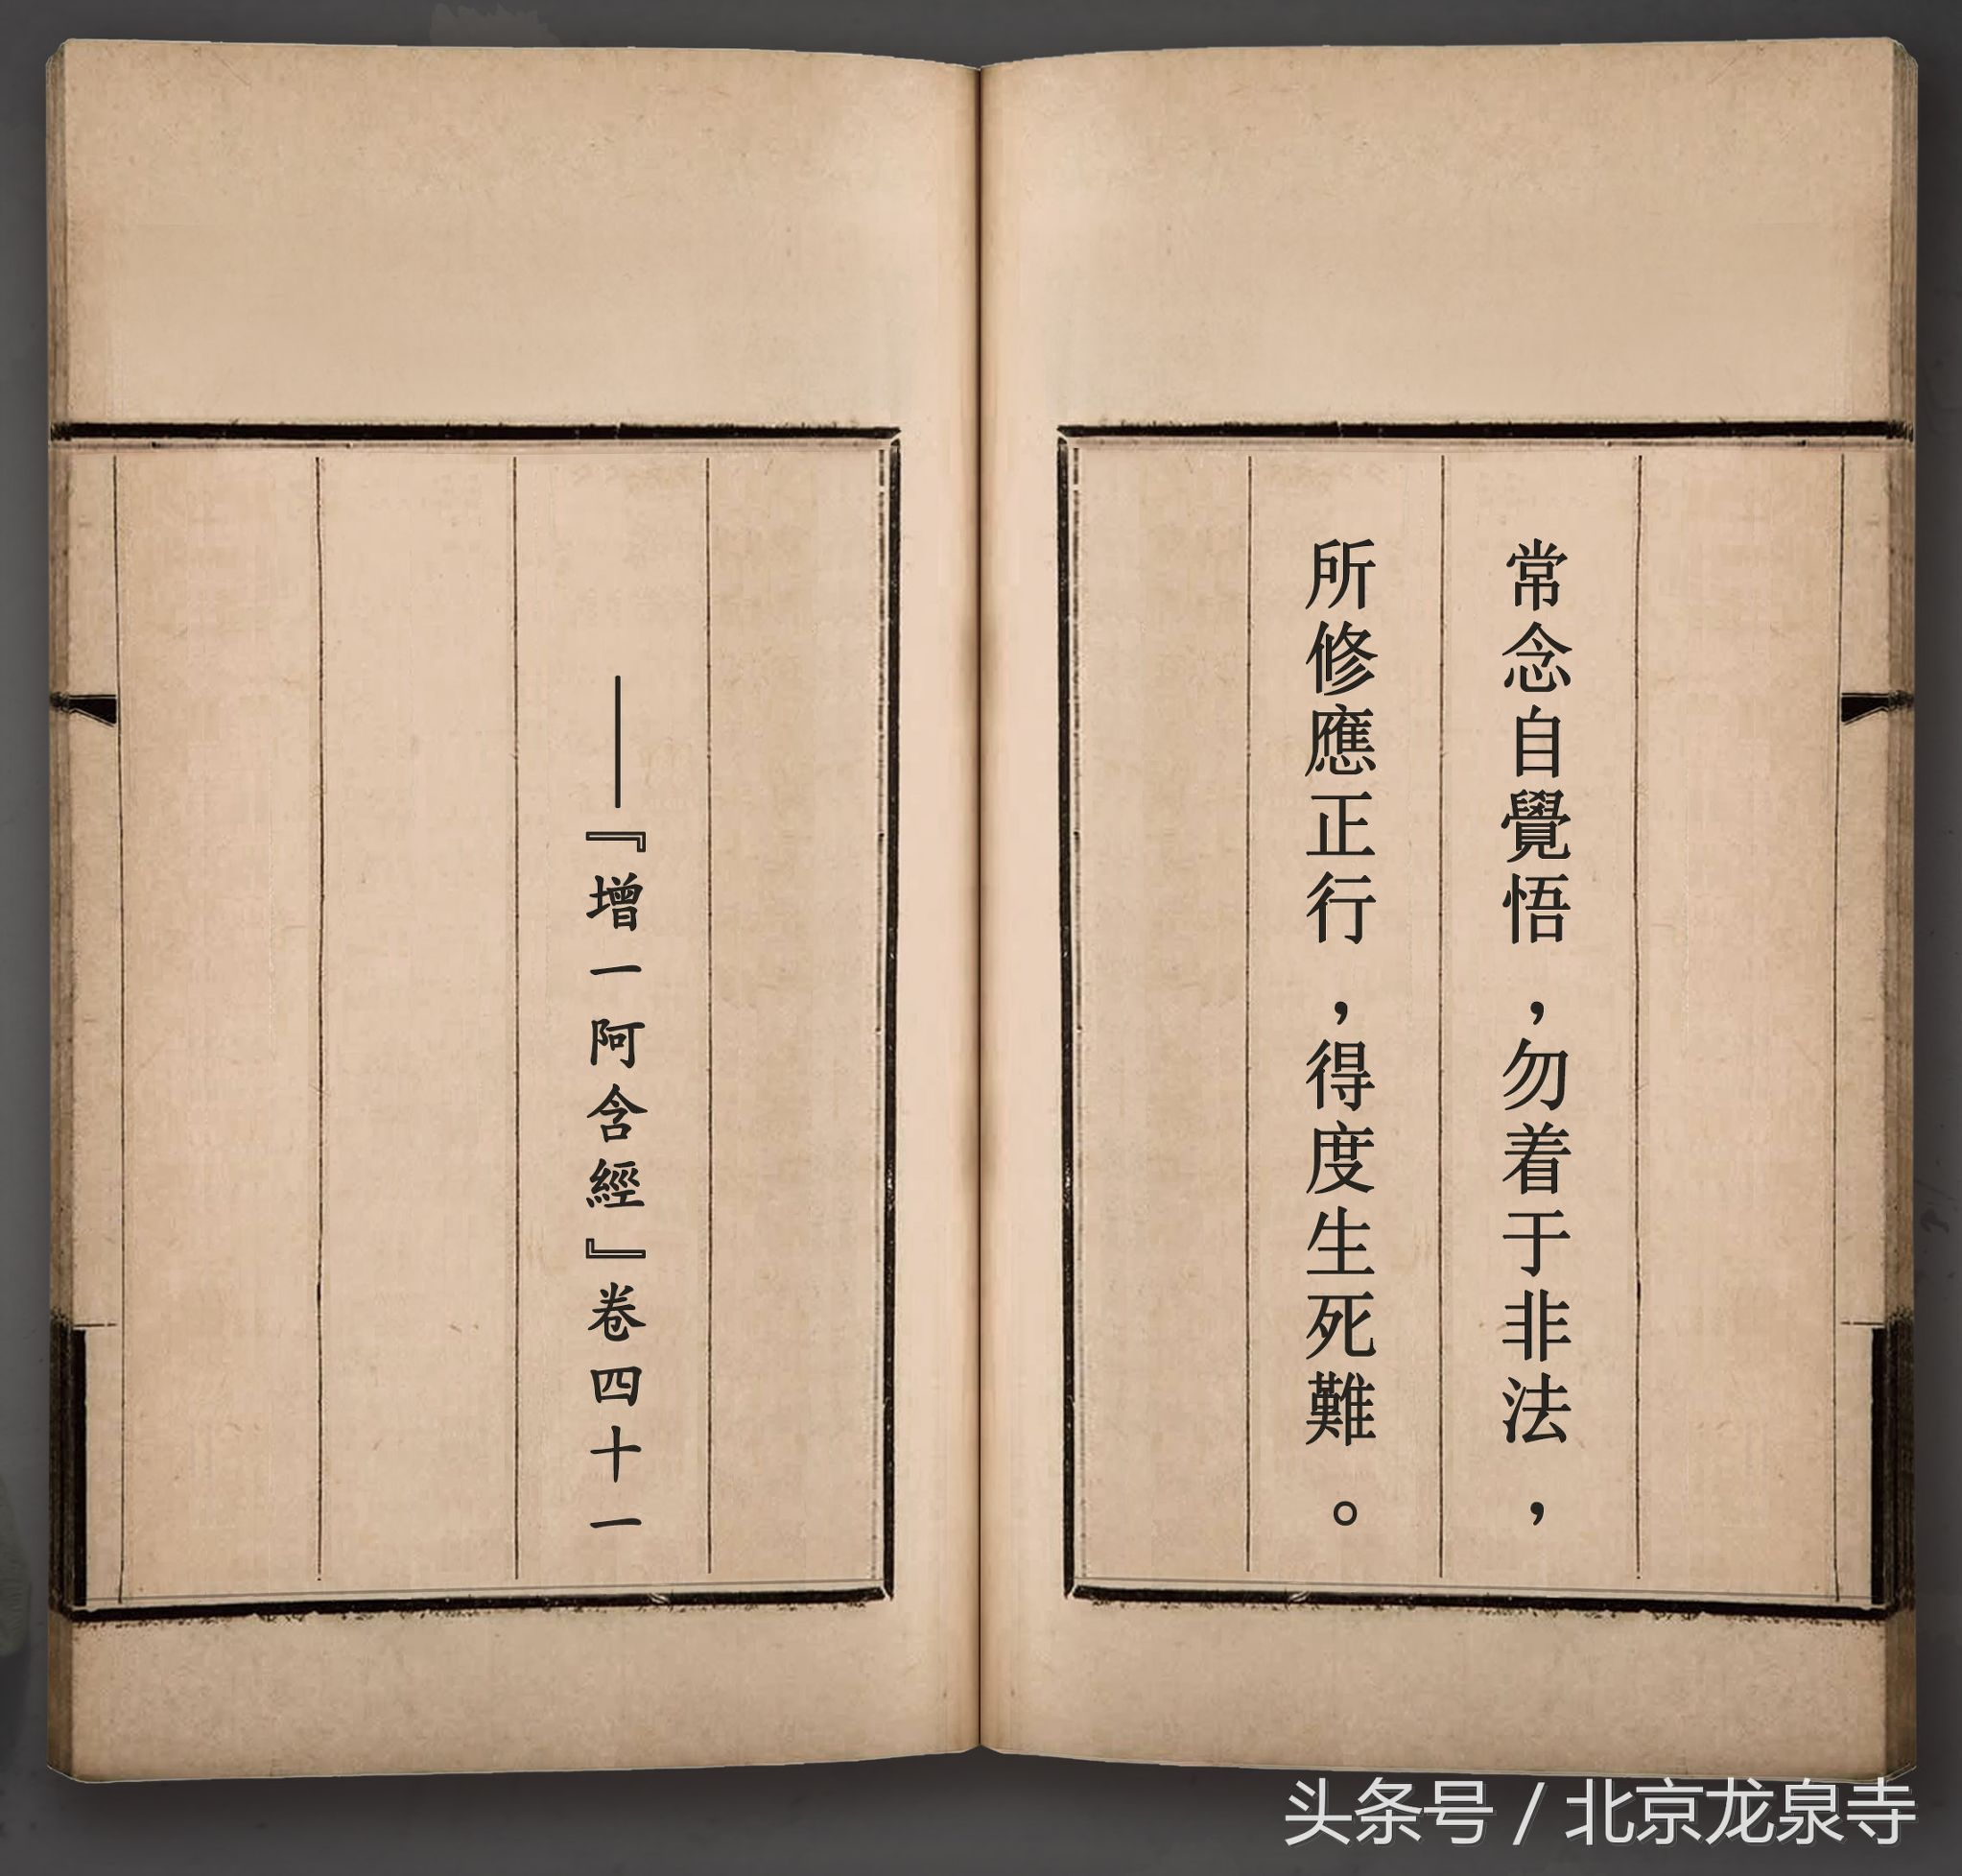 常念自覺悟，勿着于非法，
所修應正行，得度生死難。
——『增一阿含經』卷四十一
头条号 / 北京龙泉寺